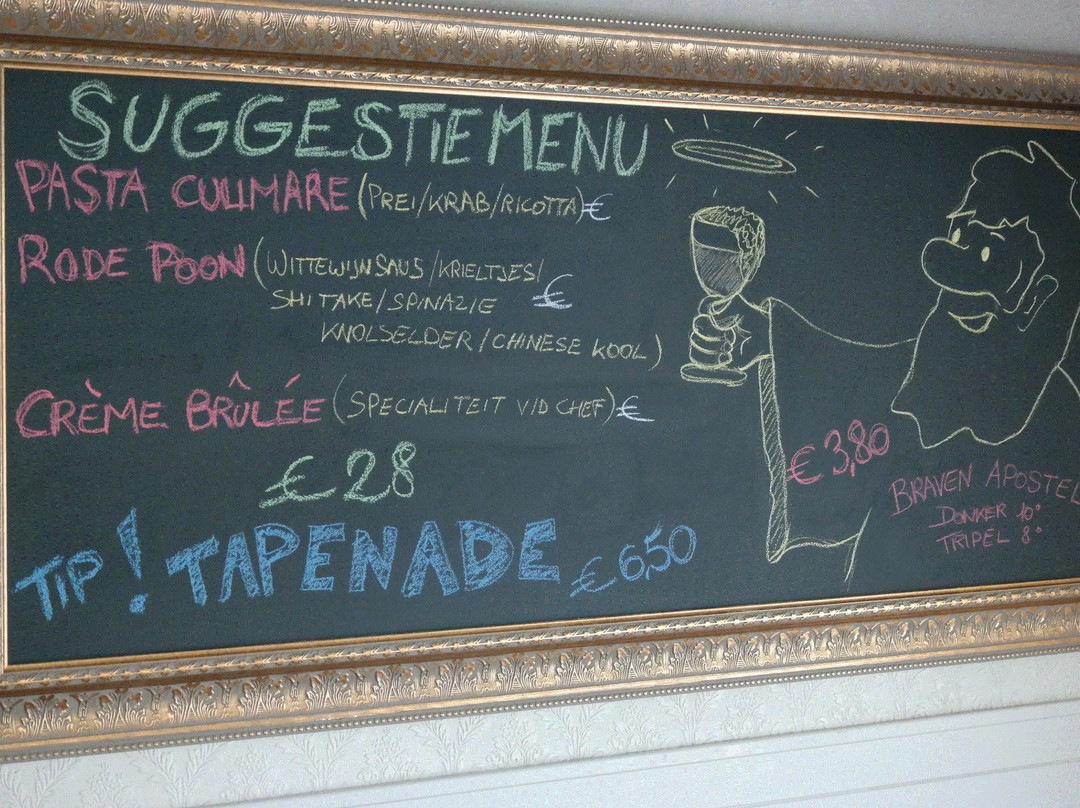 SUGGESTIEMENU
PASTA CULIMARE (PREI/KRAB/RICOTTA) €
RODE POON (WITTEWIJNSAUS/KRIELTJES/
SHITAKE/SPINAZIE €
KNOLSELDER/CHINESE KOOL)
CRÈME BRÛLÉE (SPECIALITEIT V/D CHEF) €
€ 28
TIP! TAPENADE € 6,50
€ 3,80
BRAVEN APOSTEL
DONKER 10°
TRIPEL 8°